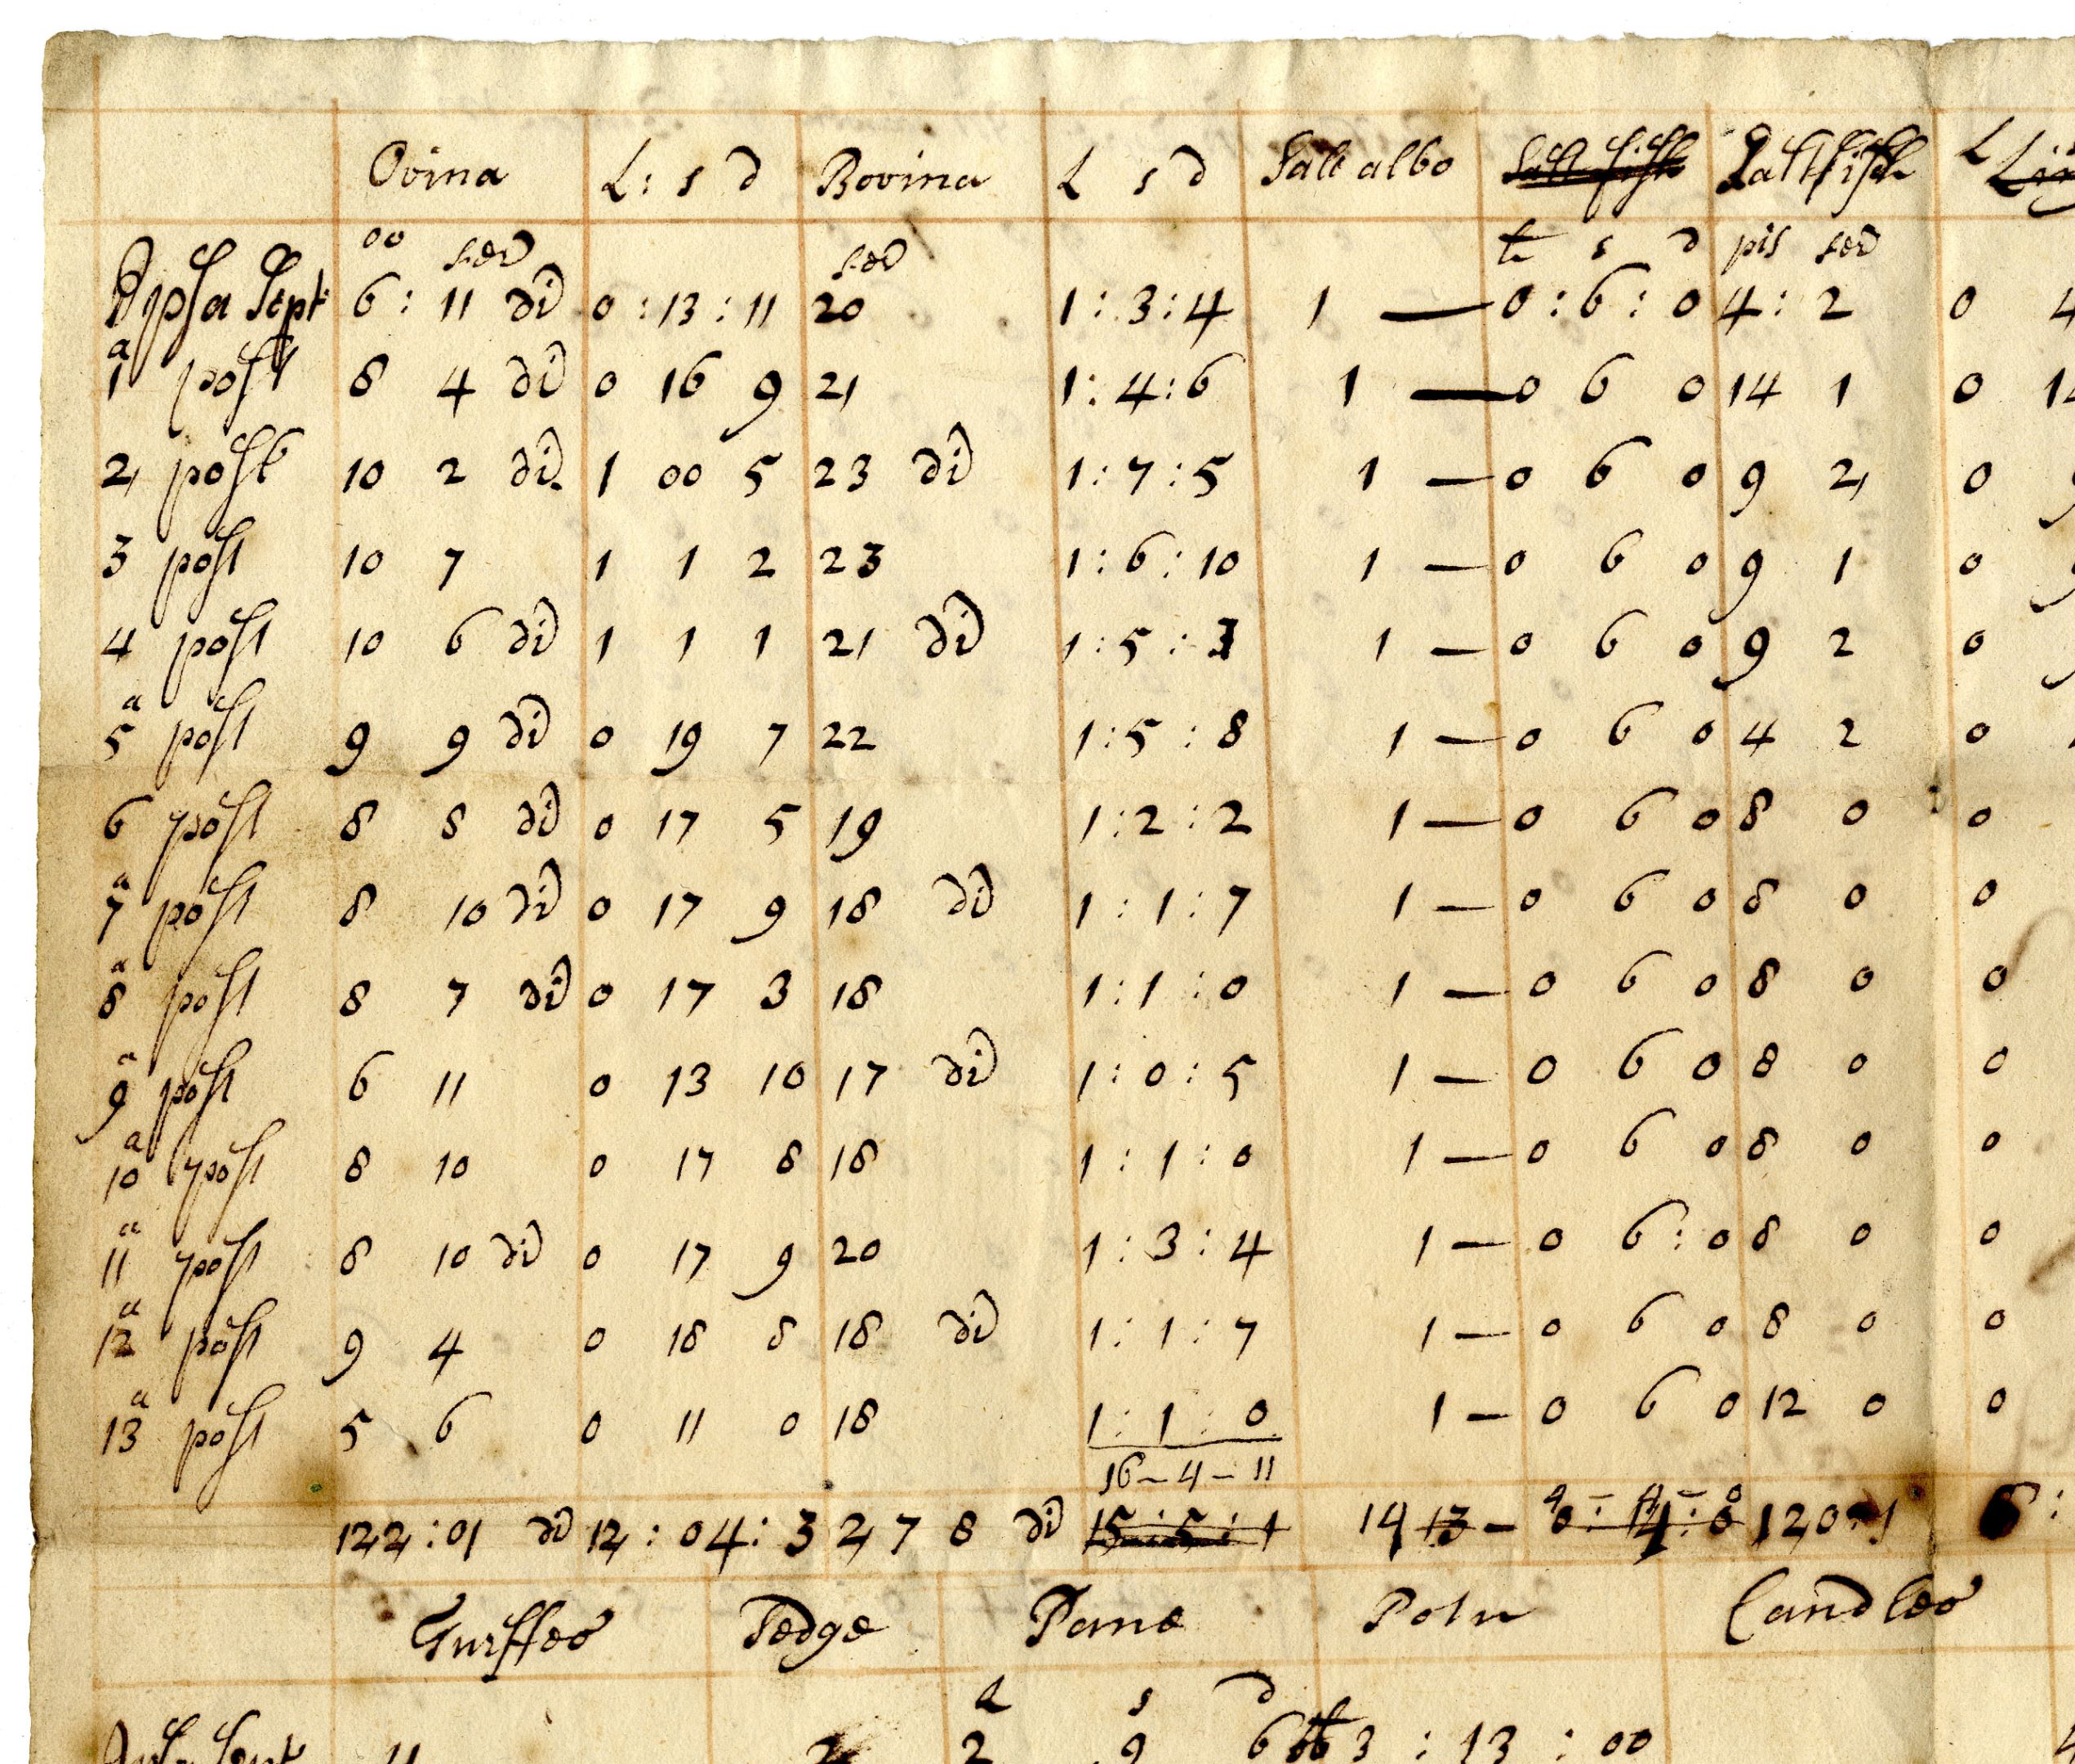 Ovina L: s d Bovina L s d Salt albo Salt fish Saltfish L Lin
oo fer fer L s d pis fer
Ipsa Sept: 6 : 11 di 0 : 13 : 11 20 1 : 3 : 4 1 — 0 : 6 : 0 4 : 2 0 4
1a post 8 4 di 0 16 9 21 1 : 4 : 6 1 — 0 6 0 14 1 0 14
2 post 10 2 di 1 00 5 23 di 1 : 7 : 5 1 — 0 6 0 9 2 0 9
3 post 10 7 1 1 2 23 1 : 6 : 10 1 — 0 6 0 9 1 0 9
4 post 10 6 di 1 1 1 21 di 1 : 5 : 1 — 0 6 0 9 2 0
5a post 9 9 di 0 19 7 22 1 : 5 : 8 1 — 0 6 0 4 2 0
6 post 8 8 di 0 17 5 19 1 : 2 : 2 1 — 0 6 0 8 0 0
7a post 8 10 di 0 17 9 18 di 1 : 1 : 7 1 — 0 6 0 8 0 0
8a post 8 7 di 0 17 3 18 1 : 1 : 0 1 — 0 6 0 8 0 0
9a post 6 11 0 13 10 17 di 1 : 0 : 5 1 — 0 6 0 8 0 0
10a post 8 10 0 17 8 18 1 : 1 : 0 1 — 0 6 0 8 0 0
11a post 8 10 di 0 17 9 20 1 : 3 : 4 1 — 0 6 : 0 8 0 0
12a post 9 4 0 18 8 18 di 1 : 1 : 7 1 — 0 6 0 8 0 0
13a post 5 6 0 11 0 18 1 : 1 : 0 1 — 0 6 0 12 0 0
16 — 4 — 11
4 — 4 — 0
122 : 01 di 12 : 04 : 3 278 di 15 : 5 : 1 14 13 — 0 : 14 : 0 120 : 1 6 :
Turffes Sedge Pane Potu Candles
L s d
Ipsa Sept 11 2 2 9 6 3 : 13 : 00 4